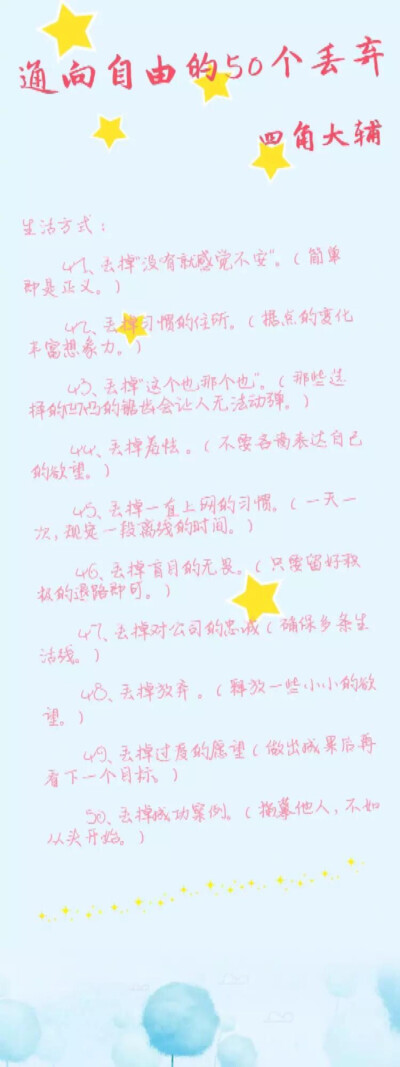 通向自由的50个丢弃
四角大辅
生活方式：
41、丢掉“没有就感觉不安”。（简单
即是正义。）
42、丢掉习惯的住所。（据点的变化
丰富想象力。）
43、丢掉“这个也那个也”。（那些选
择的凹凸的锯齿会让人无法动弹。）
44、丢掉羞怯。（不要吝啬表达自己
的欲望。）
45、丢掉一直上网的习惯。（一天一
次，规定一段离线的时间。）
46、丢掉盲目的无畏。（只要留好积
极的退路即可。）
47、丢掉对公司的忠诚（确保多条生
活线。）
48、丢掉放弃。（释放一些小小的欲
望。）
49、丢掉过度的愿望（做出成果后再
看下一个目标。）
50、丢掉成功案例。（描摹他人，不如
从头开始。）